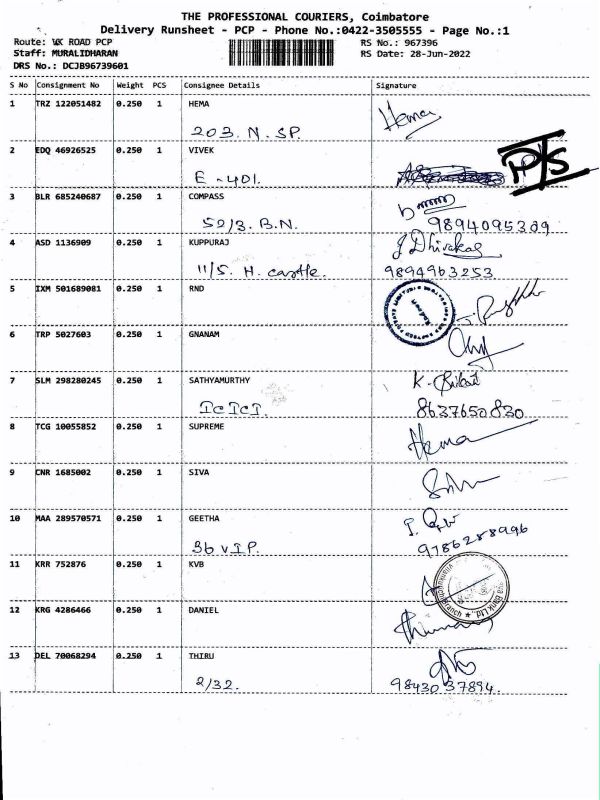 THE PROFESSIONAL COURIERS, Coimbatore
Delivery Runsheet - PCP - Phone No.:0422-3505555 - Page No.:1
Route: VK ROAD PCP RS No.: 967396
Staff: MURALIDHARAN RS Date: 28-Jun-2022
DRS No.: DCJB96739601
S No Consignment No Weight PCS Consignee Details Signature
1 TRZ 122051482 0.250 1 HEMA Hema
203. N. SP.
2 EDQ 46926525 0.250 1 VIVEK P/S
E - 401.
3 BLR 685240687 0.250 1 COMPASS
50/3. B.N. 9894095309
4 ASD 1136909 0.250 1 KUPPURAJ J Dhivakar
11/5. H. castle. 9894963253
5 IXM 501689081 0.250 1 RND
6 TRP 5027603 0.250 1 GNANAM
7 SLM 298280245 0.250 1 SATHYAMURTHY
ICICI. 8637650830
8 TCG 10055852 0.250 1 SUPREME Hema
9 CNR 1685002 0.250 1 SIVA
10 MAA 289570571 0.250 1 GEETHA
36 V.I.P. 9786288996
11 KRR 752876 0.250 1 KVB
12 KRG 4286466 0.250 1 DANIEL
13 DEL 70068294 0.250 1 THIRU
2/32. 9843037894.